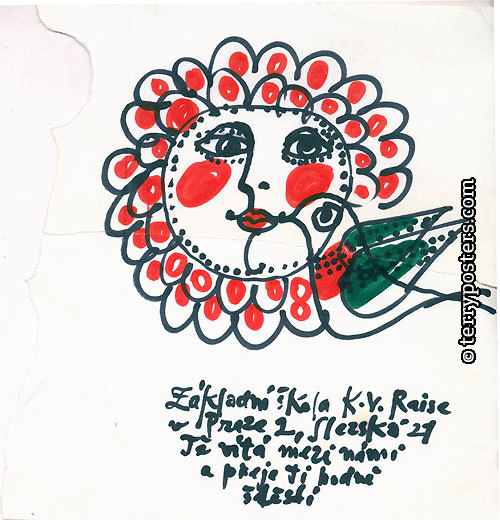 Základní škola K.V. Raise
v Praze 2, Slezská 21
Tě vítá mezi námi
a přeje Ti hodně
štěstí
© terryposters.com